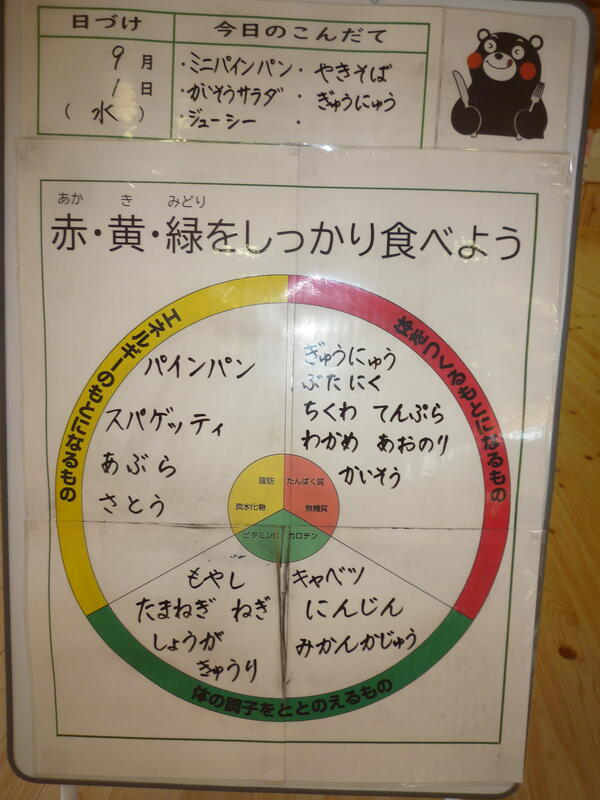 日づけ
今日のこんだて
9月
1日
(水)
・ミニパインパン・やきそば
・かいそうサラダ・ぎゅうにゅう
・ジューシー・
あか き みどり
赤・黄・緑をしっかり食べよう
エネルギーのもとになるもの
体をつくるもとになるもの
パインパン
スパゲッティ
あぶら
さとう
ぎゅうにゅう
ぶたにく
ちくわ てんぷら
わかめ あおのり
かいそう
脂肪 たんぱく質
炭水化物 無機質
ビタミンC カロチン
もやし
たまねぎ ねぎ
しょうが
きゅうり
キャベツ
にんじん
みかんかじゅう
体の調子をととのえるもの